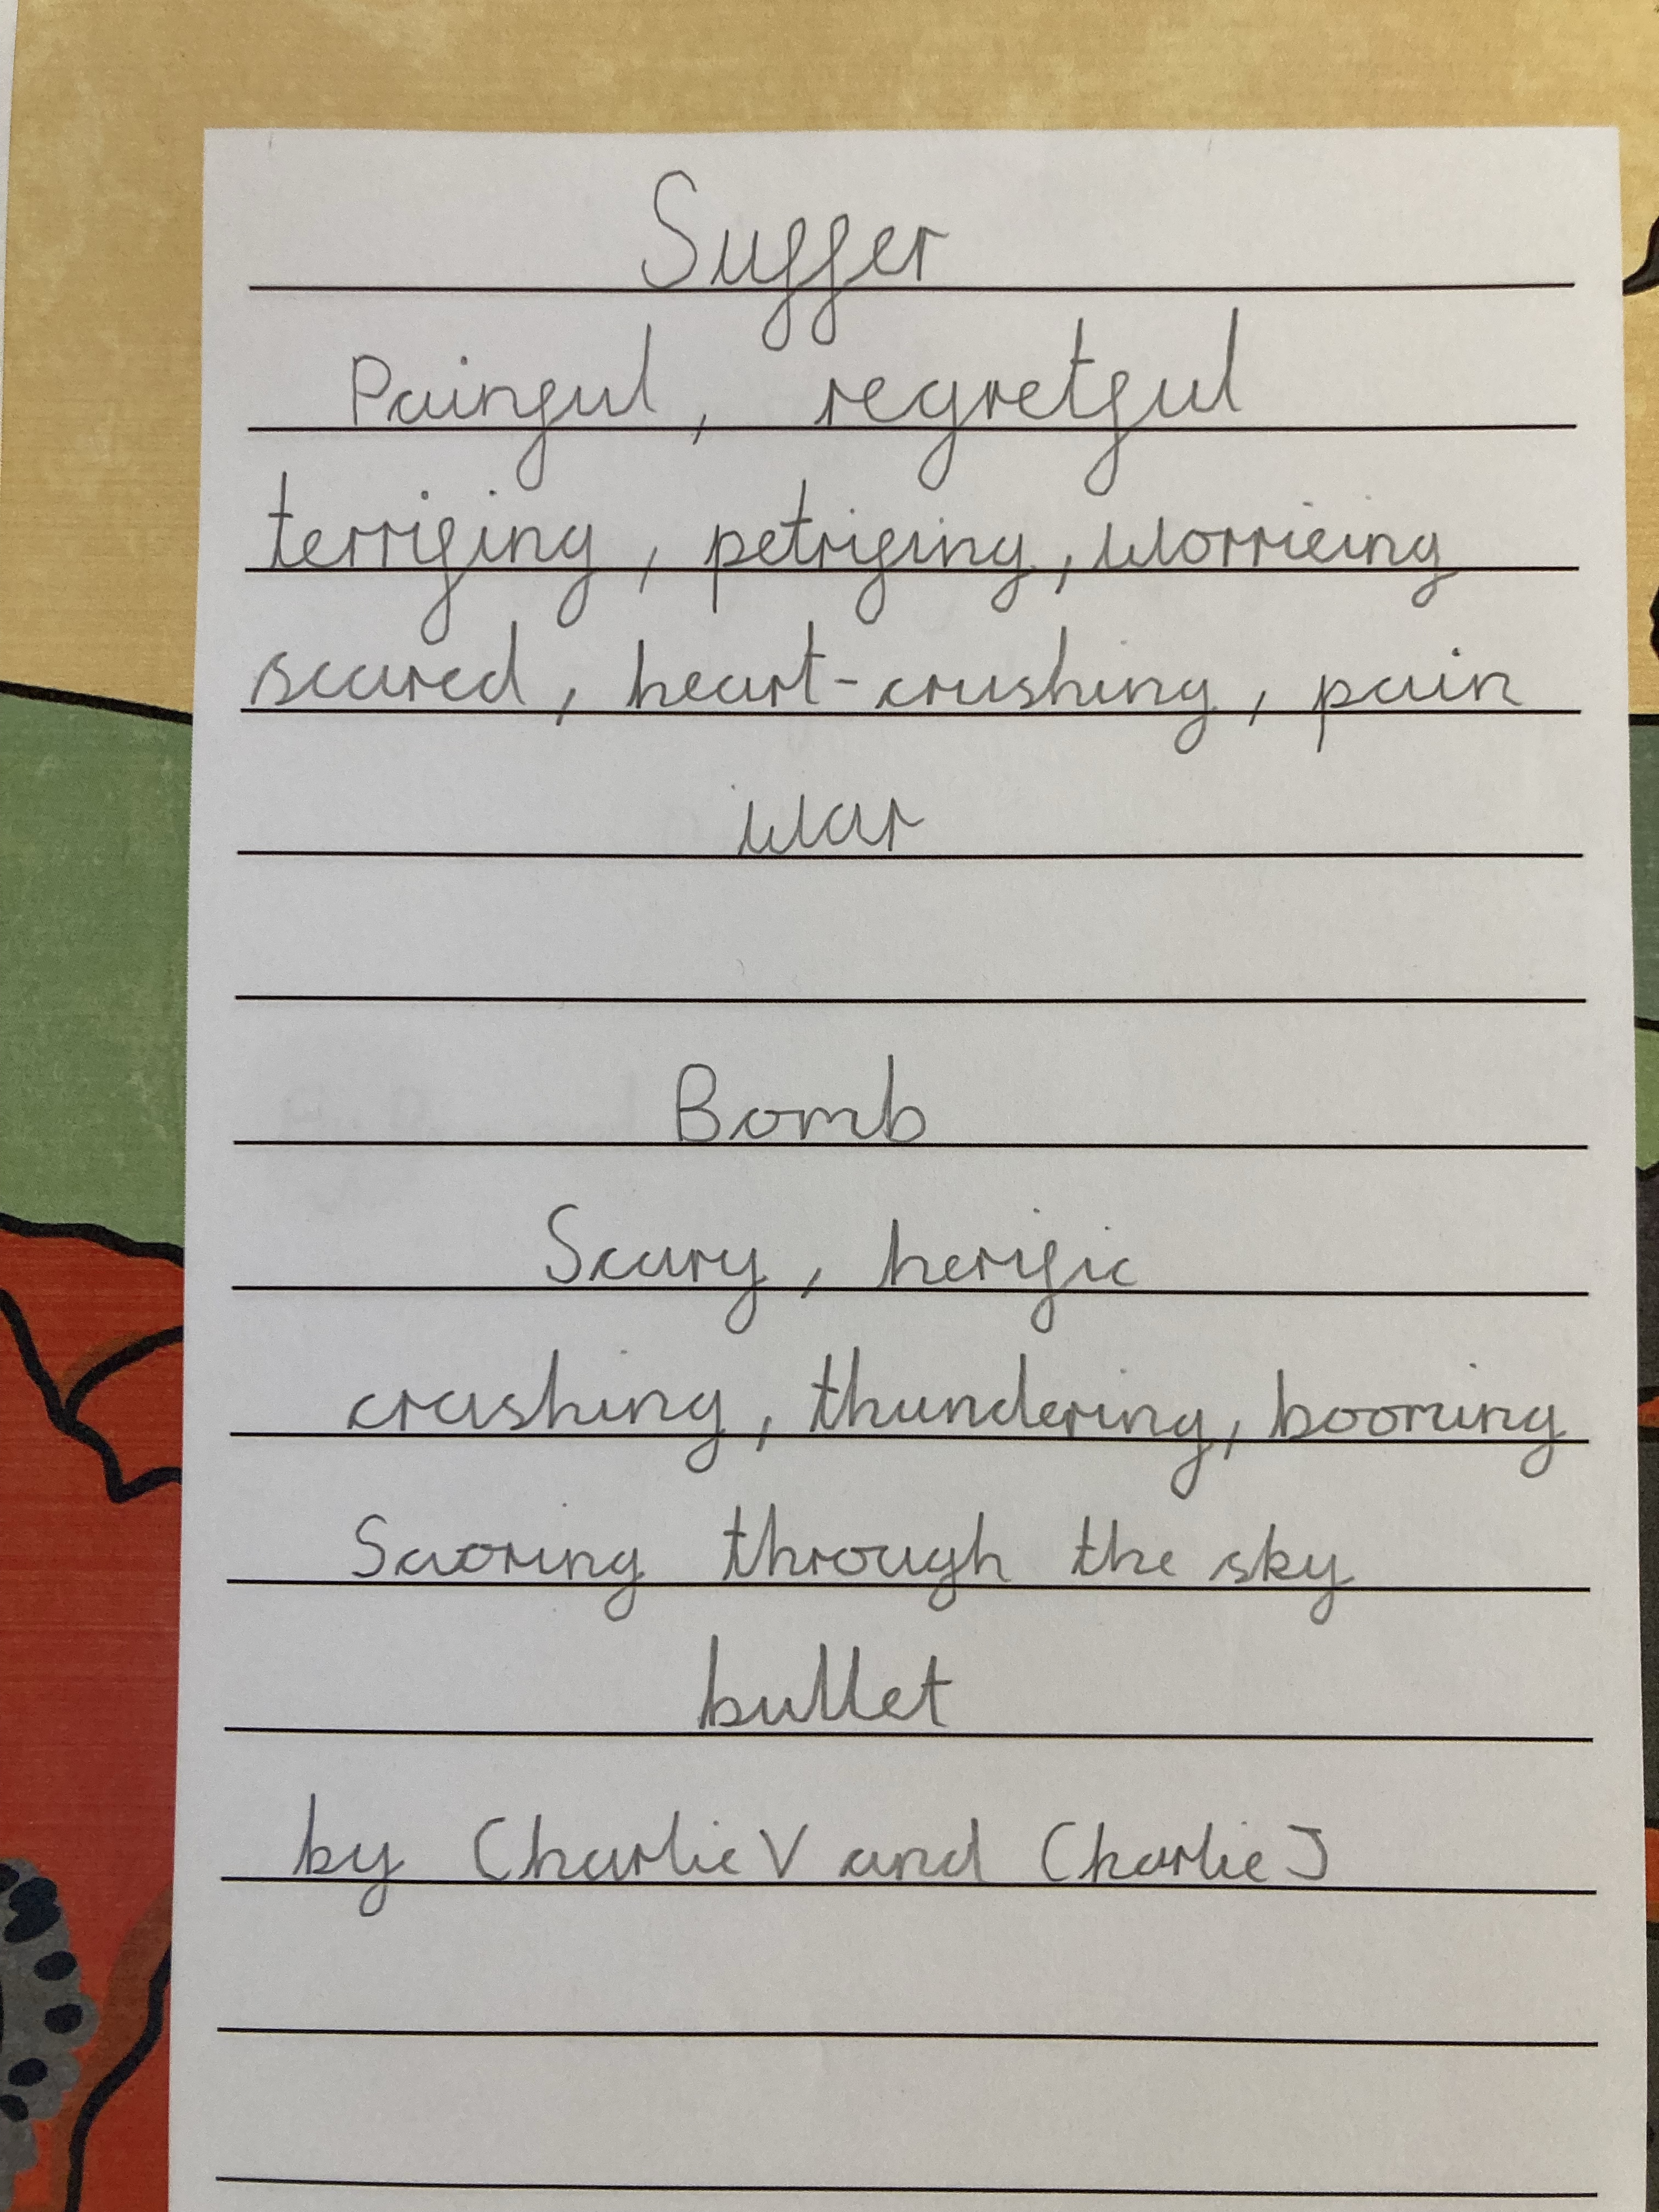 Suffer
Painful, regretful
terrifing, petrifing, worrieing
scared, heart-crushing, pain
war
Bomb
Scary, herific
crashing, thundering, booming
Saoring through the sky
bullet
by Charlie V and Charlie J